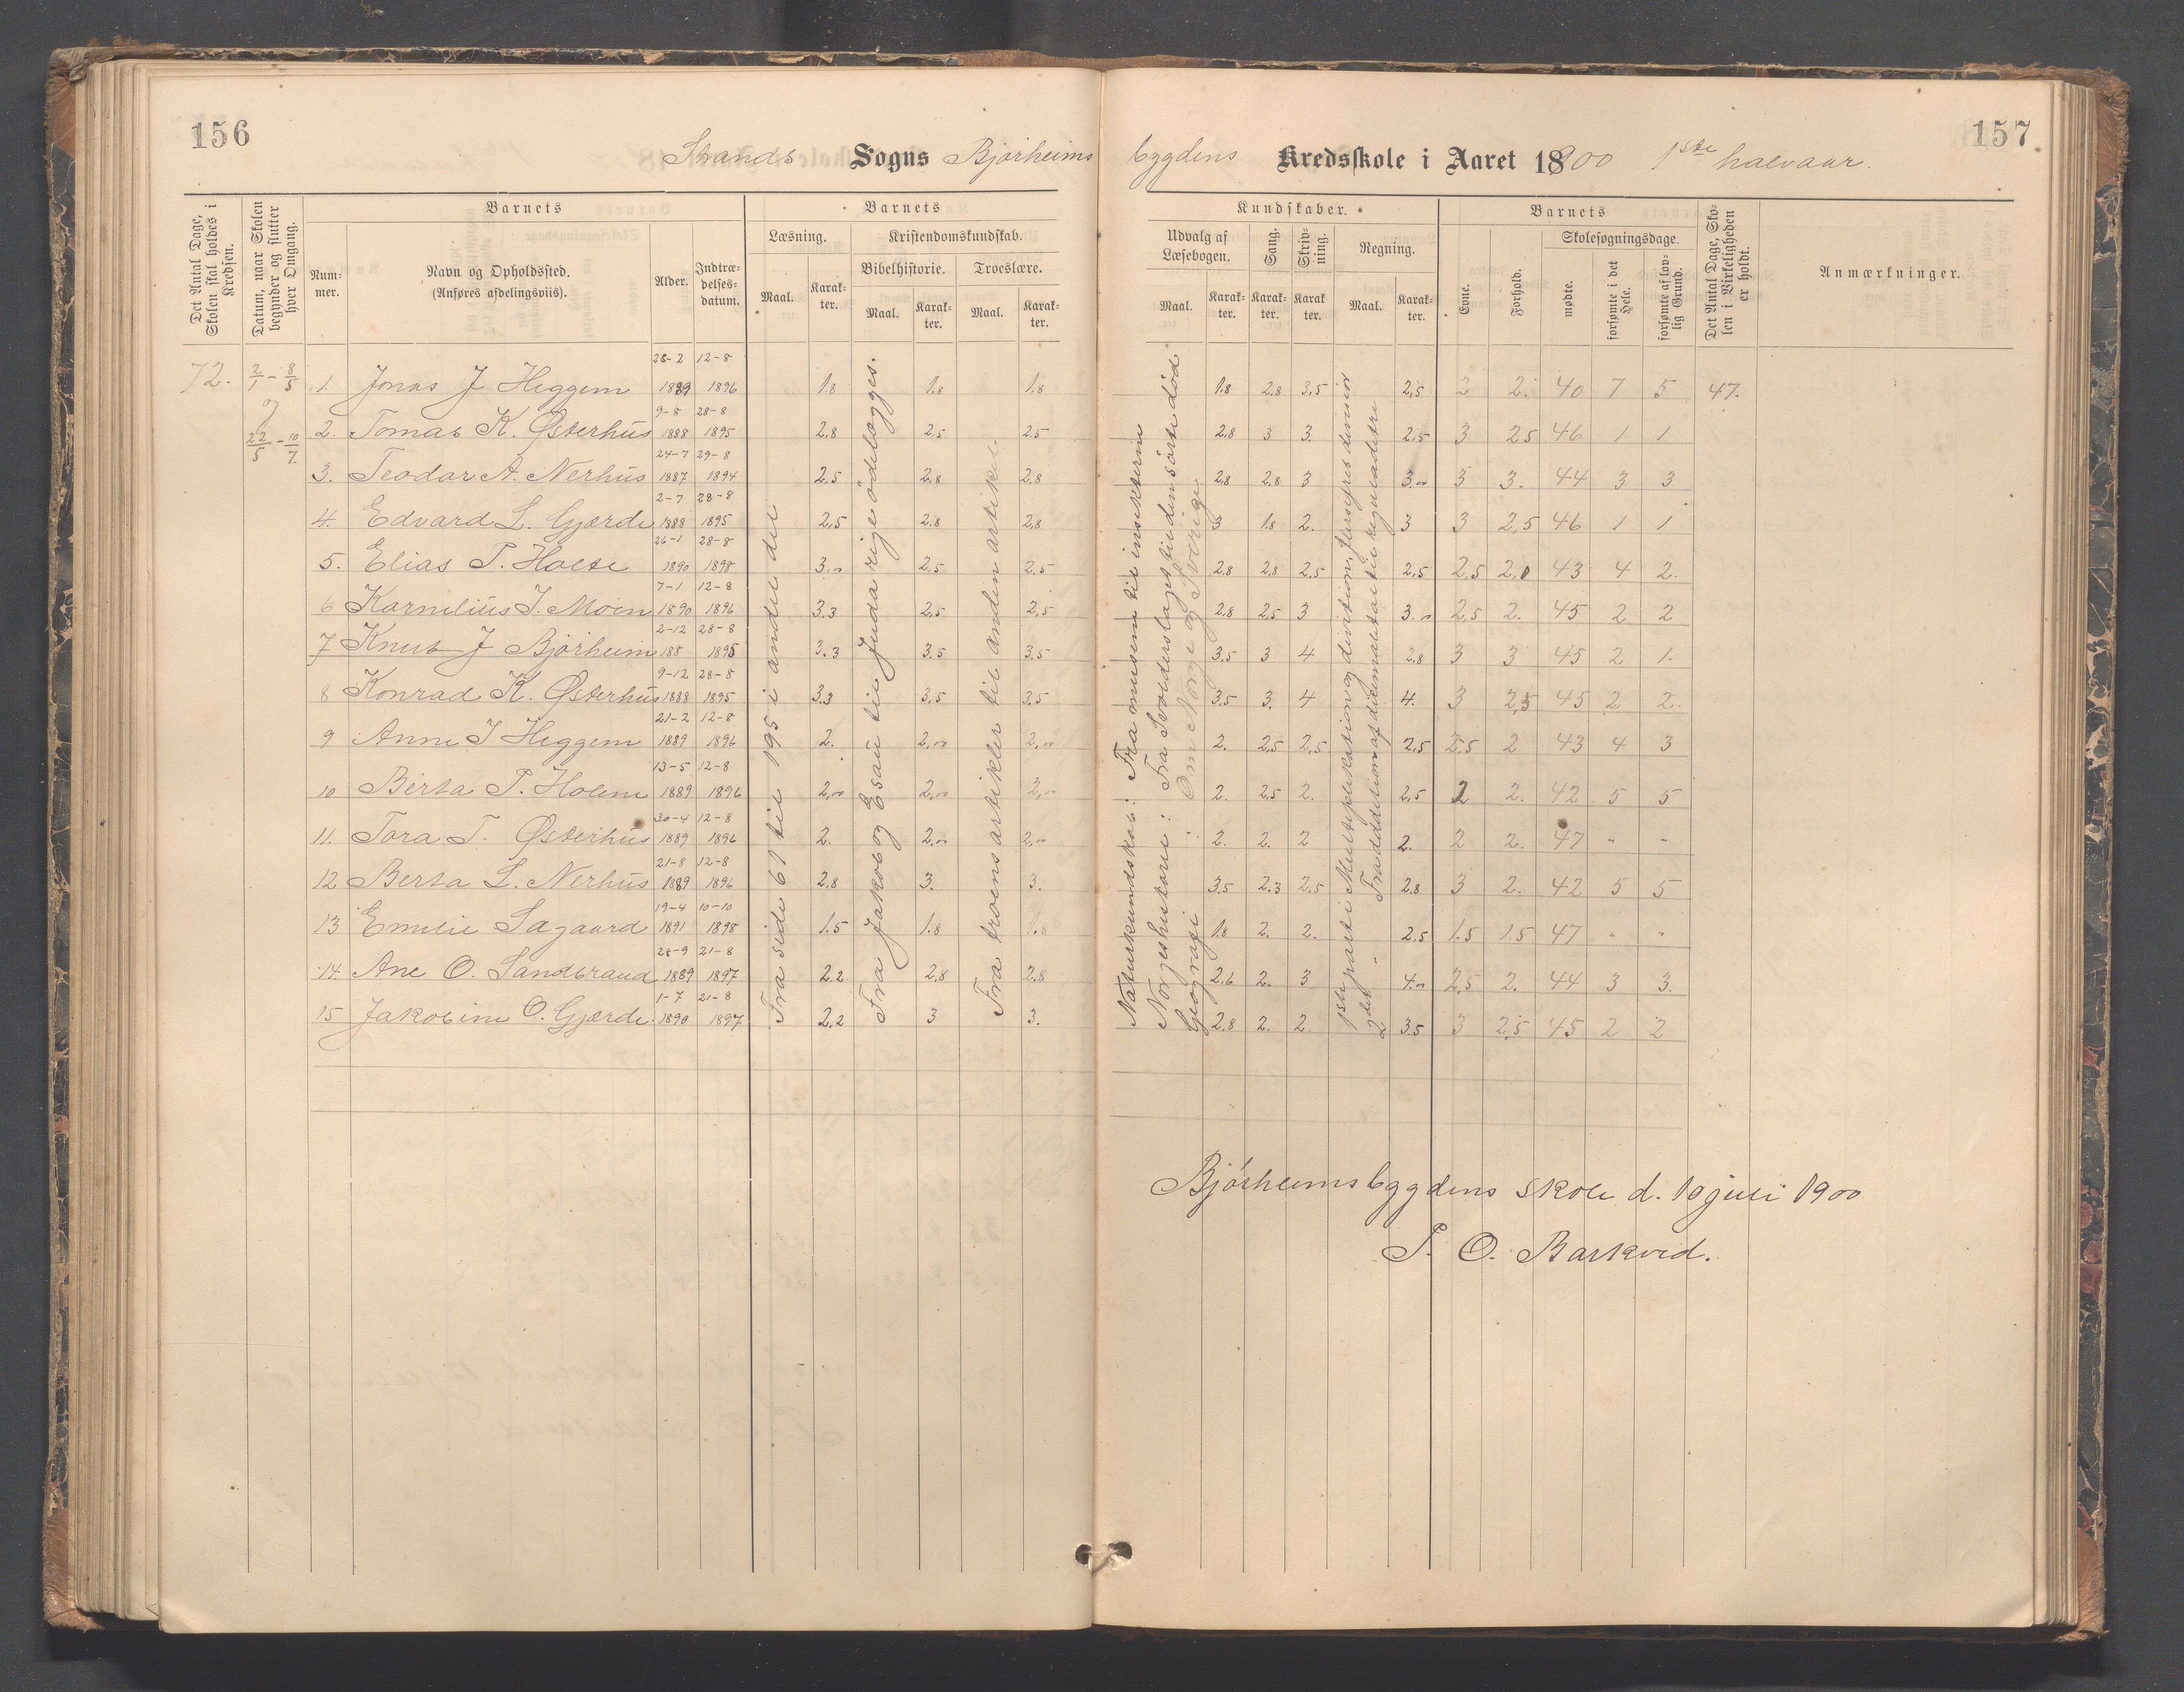 156
157
Strands Sogns Bjørheims bygdens Kredsskole i Aaret 1900 1ste halvaar.
Det Antal Dage, Skolen skal holdes i Kredsen.
Datum, naar Skolen begynder og slutter hver Omgang.
Barnets
Nummer.
Navn og Opholdssted. (Anføres afdelingsviis).
Alder.
Indtrædelsesdatum.
Barnets
Læsning.
Maal.
Karakter.
Kristendomskundskab.
Bibelhistorie.
Maal.
Karakter.
Troeslære.
Maal.
Karakter.
Kundskaber.
Udvalg af Læsebogen.
Maal.
Karakter.
Sang.
Karakter.
Skrivning.
Karakter.
Regning.
Maal.
Karakter.
Barnets
Evne.
Forhold.
Skolesøgningsdage.
mødte.
forsømte i det Hele.
forsømte af lovlig Grund.
Det Antal Dage, Skolen i Virkeligheden er holdt.
Anmærkninger.
72. 2/1 - 8/5 og 22/5 - 10/7.
1. Jonas J Heggem 28-2 1889 12-8 1896 1.8 1.8 1.8 1.8 2.8 3.5 2,5 2 2. 40 7 5 47.
2. Tomas K. Østerhus 9-8 1888 28-8 1895 2,8 2,5 2.5 2,8 3 3. 2.5 3 2.5 46 1 1
3. Teodor A. Nerhus 24-7 1887 29-8 1894 2,5 2,8 2,8 2,8 2,8 3 3.00 3 3. 44 3 3
4. Edvard L. Gjerde 2-7 1888 28-8 1895 2,5 2.8 2,8 3 1.8 2. 3 3 2,5 46 1 1
5. Elias P. Holte 26-1 1890 28-8 1898 3,00 2,5 2.5 2,8 2,8 2,5 2,5 2,5 2,0 43 4 2.
6 Kornelius J. Moen 7-1 1890 12-8 1896 3.3 2,5 2,5 2,8 2,5 3 3.00 2,5 2. 45 2 2
7 Knut J Bjørheim 2-12 188 28-8 1895 3.3 3.5 3.5 3,5 3 4 2,8 3 3 45 2 1.
8 Konrad K. Østerhus 9-12 1888 28-8 1895 3.3 3,5 3.5 3.5 3. 4 4. 3 2,5 45 2 2.
9 Anne J Heggem 21-2 1889 12-8 1896 2. 2,00 2,00 2. 2,5 2,5 2,5 2.5 2 43 4 3
10 Berta P. Holene 13-5 1889 12-8 1896 2,00 2,00 2,00 2. 2,5 2. 2,5 2 2. 42 5 5
11. Tora T. Østerhus 30-4 1889 12-8 1896 2. 2,00 2,00 2. 2. 2 2. 2 2. 47 " "
12 Berta L. Nerhus 21-8 1889 12-8 1896 2,8 3. 3. 3.5 2.3 2,5 2,8 3 2. 42 5 5
13 Emilie Sagaard 19-4 1891 10-10 1898 1.5 1.8 1.8 1.8 2. 2. 2.5 1.5 1.5 47 " "
14. Ane O. Sandbraud 28-9 1889 21-8 1897 2.2 2,8 2.8 2.6 2. 3 4.00 2,5 2. 44 3 3.
15 Jakobine O. Gjerde. 1-7 1890 21-8 1897 2,2 3 3. 2.8 2. 2. 3.5 3 2,5 45 2 2
Fra side 61 til 195 i andet del
Fra Jakob og Esau til Juda rige ødelægges.
Fra troens artikler til anden artikel
Naturkundskab: Fra musen til insekterne
Norgeshistorie: Fra Svolderslaget til den sorte død.
Geografi : Om Norge og Sverige
1ste part i Multiplikation og division, forskjels dimension
2det - Fra addition af decimaltal til kvadratmetre
Bjørheimsbygdens skole d. 10 juli 1900
P. O. Barkved.